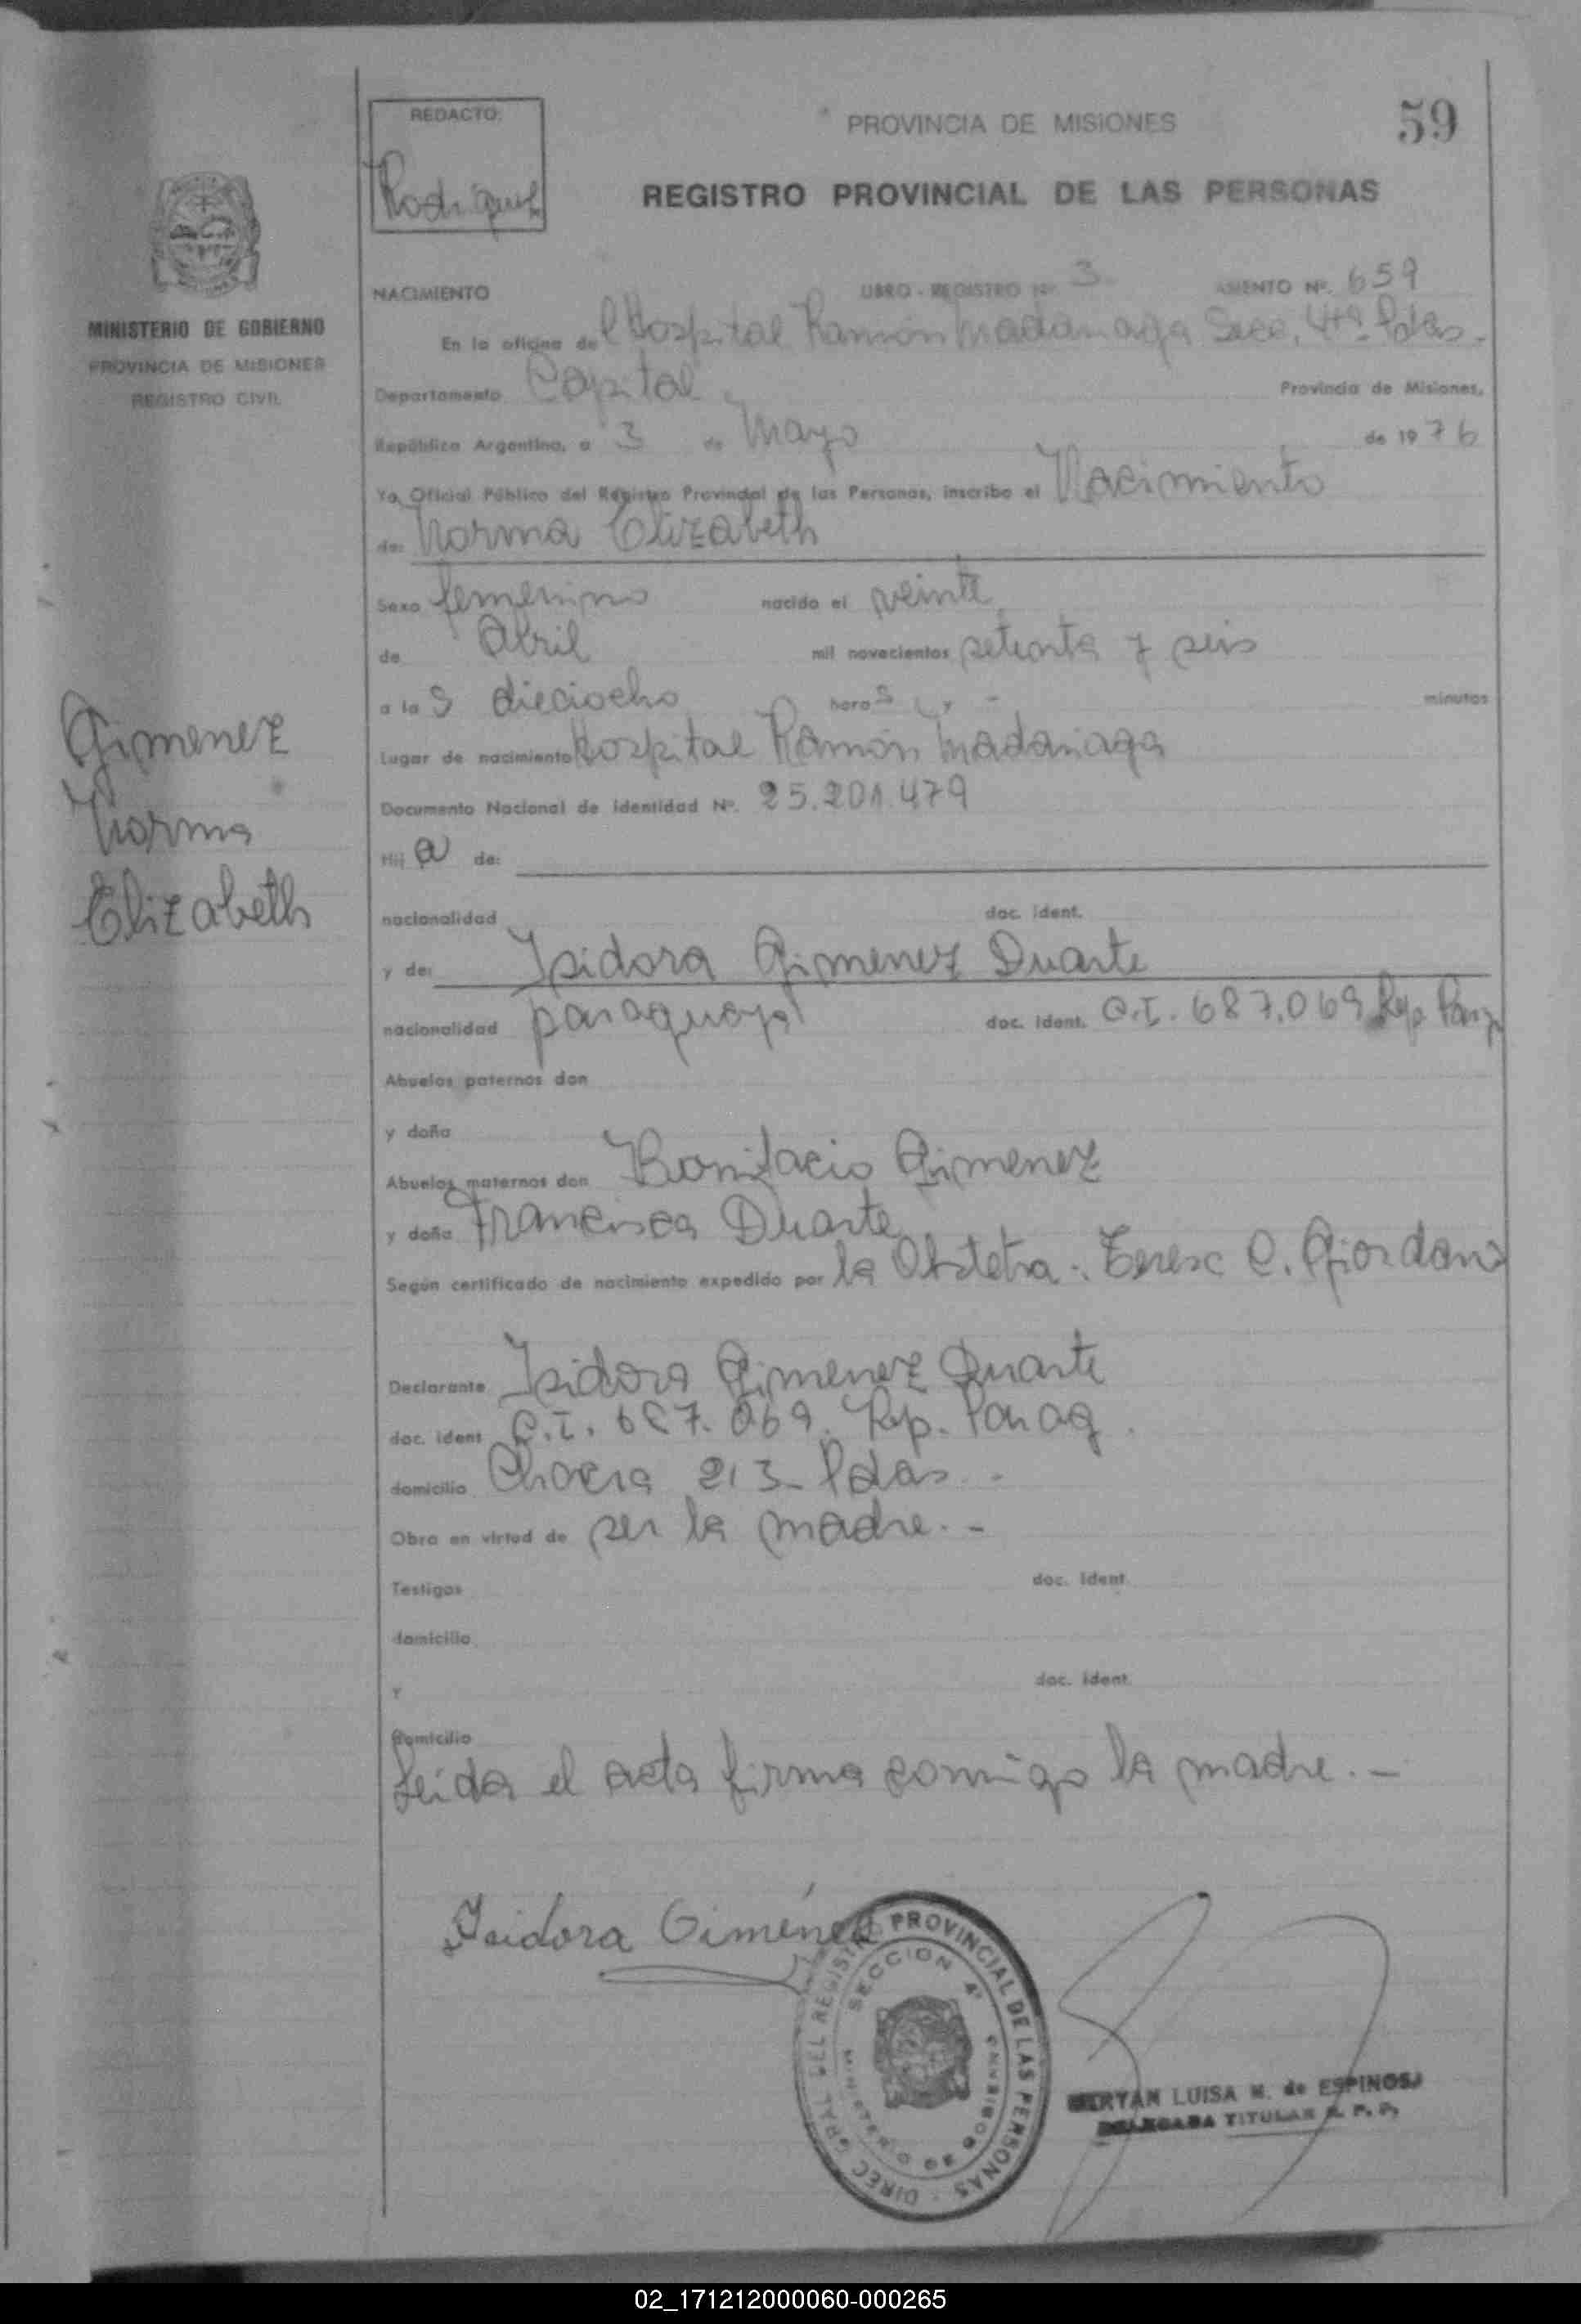 REDACTO:
Rodriguez
PROVINCIA DE MISIONES
59
REGISTRO PROVINCIAL DE LAS PERSONAS
MINISTERIO DE GOBIERNO
PROVINCIA DE MISIONES
REGISTRO CIVIL
NACIMIENTO LIBRO - REGISTRO Nº. 3 ASIENTO Nº. 659
En la oficina del Hospital Ramón Madariaga Secc. 4ta. Pdas.-
Departamento Capital Provincia de Misiones,
República Argentina, a 3 de Mayo de 1976
Yo, Oficial Público del Registro Provincial de las Personas, inscribo el Nacimiento
de: Norma Elizabeth
Sexo femenino nacido el veinte
de Abril mil novecientos setenta y seis
a las dieciocho horas y - minutos
Lugar de nacimiento Hospital Ramón Madariaga
Documento Nacional de Identidad Nº. 25.201.479
Hija de:
nacionalidad doc. ident.
y de: Isidora Gimenez Duarte
nacionalidad paraguaya doc. ident. C.I. 687.069 Rep. Parag
Abuelos paternos don
y doña
Abuelos maternos don Bonifacio Gimenez
y doña Francisca Duarte
Según certificado de nacimiento expedido por la Obstetra: Teresa C. Giordano
Declarante Isidora Gimenez Duarte
doc. ident. C.I. 687.069. Rep. Parag.
domicilio Chacra 213 - Pdas. -
Obra en virtud de ser la madre. -
Testigos doc. ident.
domicilio
Y doc. ident.
domicilio
Leida el acta firma conmigo la madre. -
Gimenez
Norma
Elizabeth
Isidora Giménez
DIREC. GRAL DEL REGISTRO PROVINCIAL DE LAS PERSONAS -
SECCION 4ª
MINISTERIO DE GOBIERNO
LUISA M. de ESPINOSA
DELEGADA TITULAR R. P. P.
02_171212000060-000265